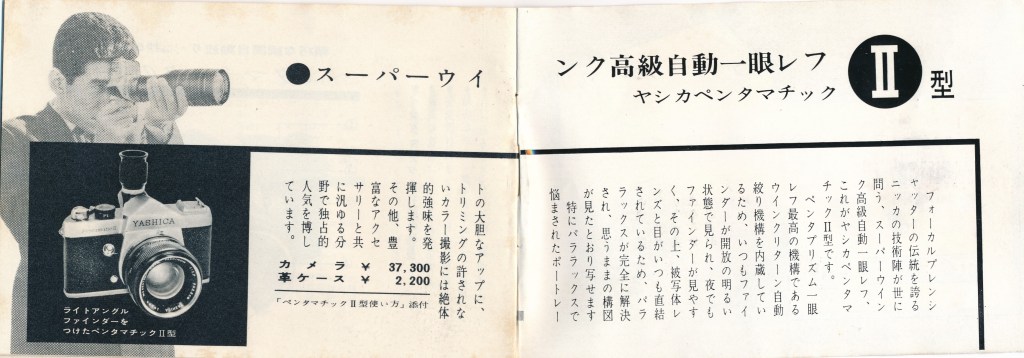 ●スーパーウインク高級自動一眼レフ
ヤシカペンタマチック
II型
フォーカルプレンシ
ャッターの伝統を誇る
ニッカの技術陣が世に
問う、スーパーウイン
ク高級自動一眼レフ、
これがヤシカペンタマ
チックII型です。
ペンタプリズム一眼
レフ最高の機構である
ウインクリターン自動
絞り機構を内蔵してい
るため、いつもファイ
ンダーが開放の明るい
状態で見られ、夜でも
ファインダーが見やす
く、その上、被写体レ
ンズと目がいつも直結
されているため、パラ
ラックスが完全に解決
され、思うままの構図
が見たとおり写せます
特にパララックスで
悩まされたポートレー
トの大胆なアップに、
トリミングの許されな
いカラー撮影には絶体
的強味を発
揮します。
その他、豊
富なアクセ
サリーと共
に汎ゆる分
野で独占的
人気を博し
ています。
カメラ ¥ 37,300
革ケース ¥ 2,200
「ペンタマチックII型使い方」添付
YASHICA
ライトアングル
ファインダーを
つけたペンタマチックII型